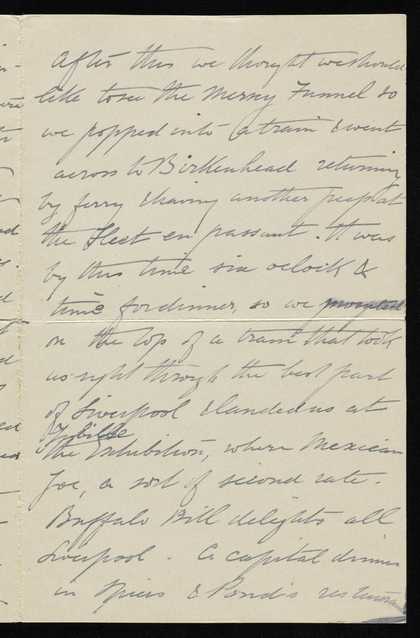 After this we thought we should
like to see the Mersey Tunnel so
we popped into a train & went
across to Birkenhead returning
by ferry & having another peep at
the Fleet en passant. It was
by this time six oclock &
time for dinner, so we
on the top of a tram that took
us right through the best part
of Liverpool & landed us at
the Exhibition, where Mexican
Joe, a sort of second rate
Buffalo Bill delights all
Liverpool. A capital dinner
in Spiers & Pond's